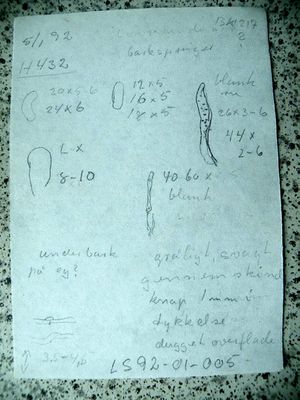 5/1 92
barksprænger
H432
20x5-6
24x6
12x5
16x5
18x5
blank
26x3-6
44x
2-6
L-x
8-10
40-60x
blank
under bark
på eg?
gråligt, svagt
gennemskin
knap 1 mm i
tykkelse
dugget overflade
LS92-01-005